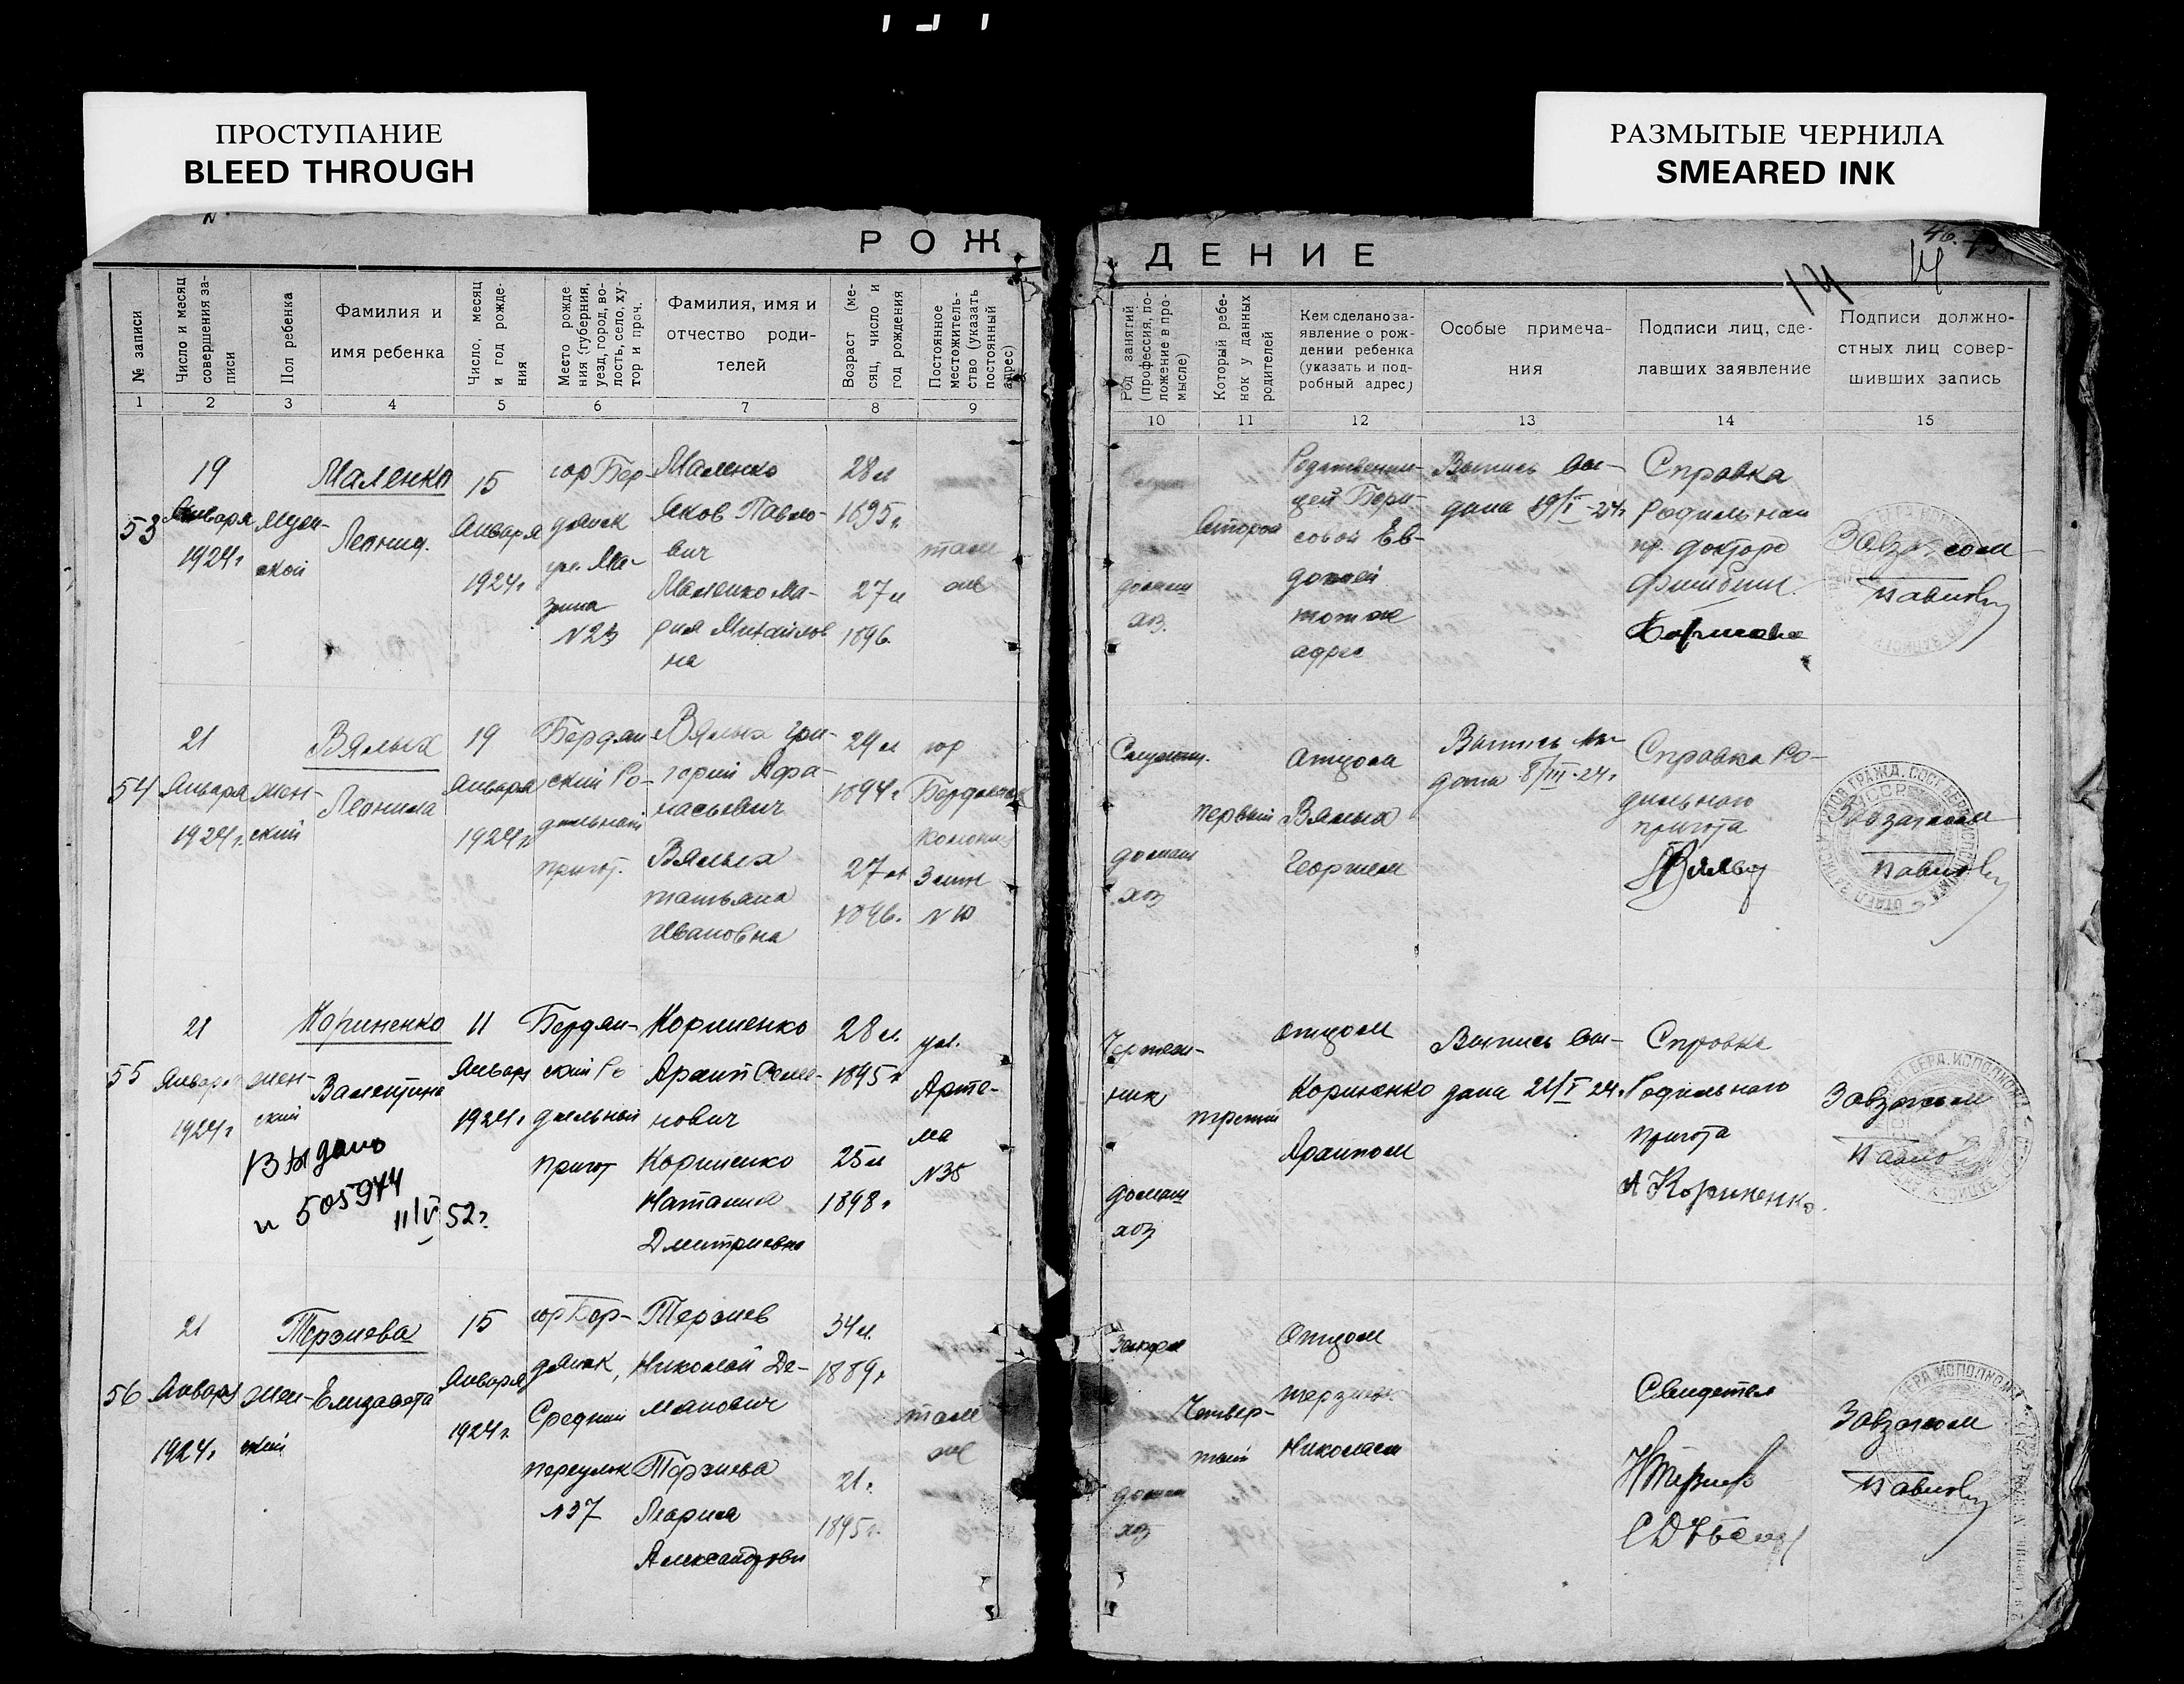 ПРОСТУПАНИЕ
BLEED THROUGH
РАЗМЫТЫЕ ЧЕРНИЛА
SMEARED INK
РОЖ
ДЕНИЕ
14
№ записи
Число и месяц
совершения за-
писи
Пол ребенка
Фамилия и
имя ребенка
Число, месяц
и год рожде-
ния
Место рожде
ния (губерния,
уезд, город, во-
лость, село, ху-
тор и проч.
Фамилия, имя и
отчество роди-
телей
Возраст (ме-
сяц, число и
год рождения
Постоянное
местожитель-
ство (указать
постоянный
адрес)
Род занятий
(профессия, по-
ложение в про-
мысле)
Который ребе-
нок у данных
родителей
Кем сделано за-
явление о рож-
дении ребенка
(указать и под-
робный адрес)
Особые примеча-
ния
Подписи лиц, сде-
лавших заявление
Подписи должно-
стных лиц совер-
шивших запись
1 2 3 4 5 6 7 8 9
10 11 12 13 14 15
53
19
Января
1924г
Муж-
ской
Маленко
Леонид.
15
Января
1924г
гор Бер-
дянск
ул. Ма-
зина
N 23
Маленко
Яков Павло-
вич
Маленко Ма-
рия Михайлов
на
28 л
1895 г.
27 л
1896.
там
же
домаш
хоз.
второй
Родственни-
цей Бори-
совой Ев-
докией
тот же
адрес
Выпись вы-
дана 19/I-24г
Справка
Родильнаи
пр. доктора
Борисова
Завзагсом
Павлов
54
21
Января
1924г.
жен-
ский
Вялых
Леонила
19
Января
1924 г
Бердян
ский Ро-
дильный
приют.
Вялых Гри-
горий Афа-
насьевич
Вялых
Татьяна
Ивановна
29 л
1894 г
27 л
1896.
гор
Бердянск
колония
N 10
Служащ.
домаш
хоз
первый
отцом
Вялых
Георгием
Выпись вы-
дана 8/III-24г
Справка Ро-
дильного
приюта
Завзагсом
Павлов
55
21
Января
1924г
жен-
ский
Кориненко
Валентина
11
Января
1924г.
Бердян-
ский Ро
дильный
приют
Кориненко
Архип Семе-
нович
Кориненко
Наталия
Дмитриевна
28 л.
1895 г
25 л
1898 г
ул.
Арте-
ма
N 35
Выдано
N 505944
11/V 52г.
Чертеж-
ник
домаш
хоз
третий
отцом
Кориненко
Архипом
Выпись вы-
дана 21/I 24г
Справка
Родильного
приюта
А Кориненко.
Завзагсом
Павлов
56
21
Января
1924г
жен-
ский
Терзиева
Елизавета
15
Января
1924 г.
гор Бер-
дянск,
Средний
переулок
N 37
Терзиев
Николай Де-
манович
Терзиева
Мария
Александровн
34 л.
1889г
1895г.
там
же
домаш
хоз
Четвер-
тый
Отцом
Терзиев
Николаем
Свидетел
НТерзиев
Завзагсом
Павлов